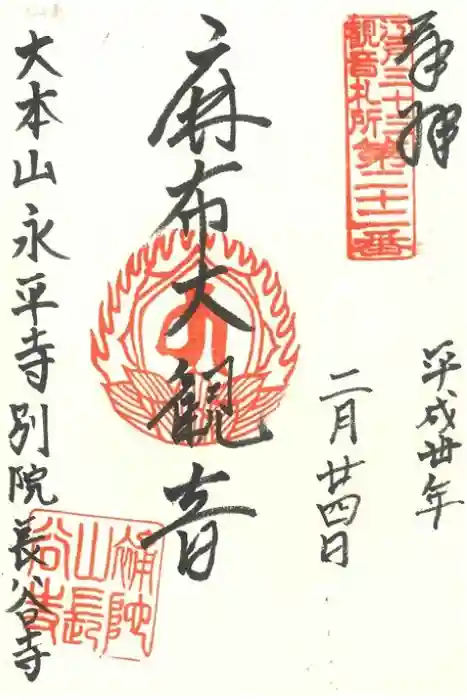 奉拝
江戸三十三
観音札所第二十二番
平成丗年
二月廿四日
麻布大観音
大本山永平寺別院長谷寺
補陀
山長
谷寺